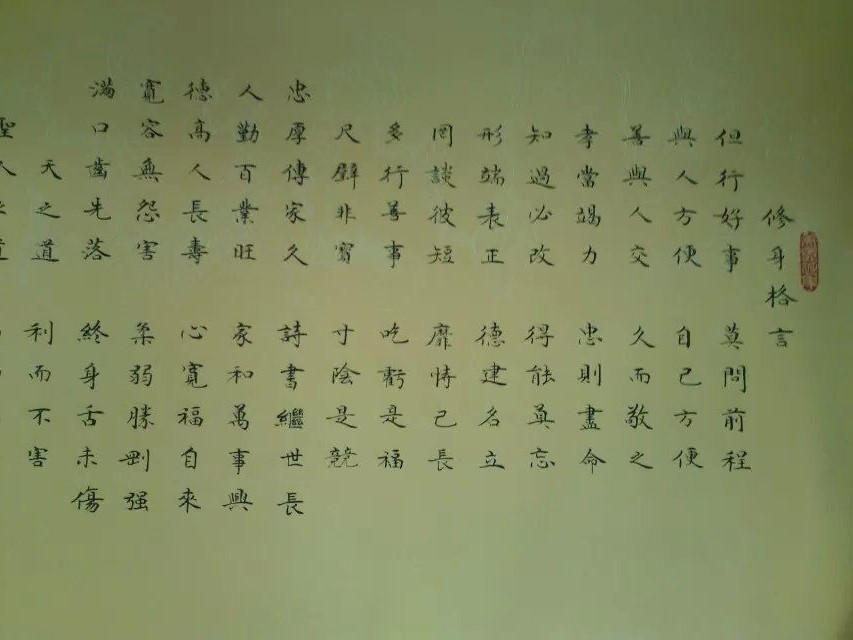 修身格言
但行好事 莫問前程
與人方便 自己方便
善與人交 久而敬之
孝當竭力 忠則盡命
知過必改 得能莫忘
形端表正 德建名立
罔談彼短 靡恃己長
多行善事 吃虧是福
尺璧非寶 寸陰是競
忠厚傳家久 詩書繼世長
人勤百業旺 家和萬事興
德高人長壽 心寬福自來
寬容無怨害 柔弱勝剛强
滿口齒先落 終身舌未傷
天之道 利而不害
聖人之道